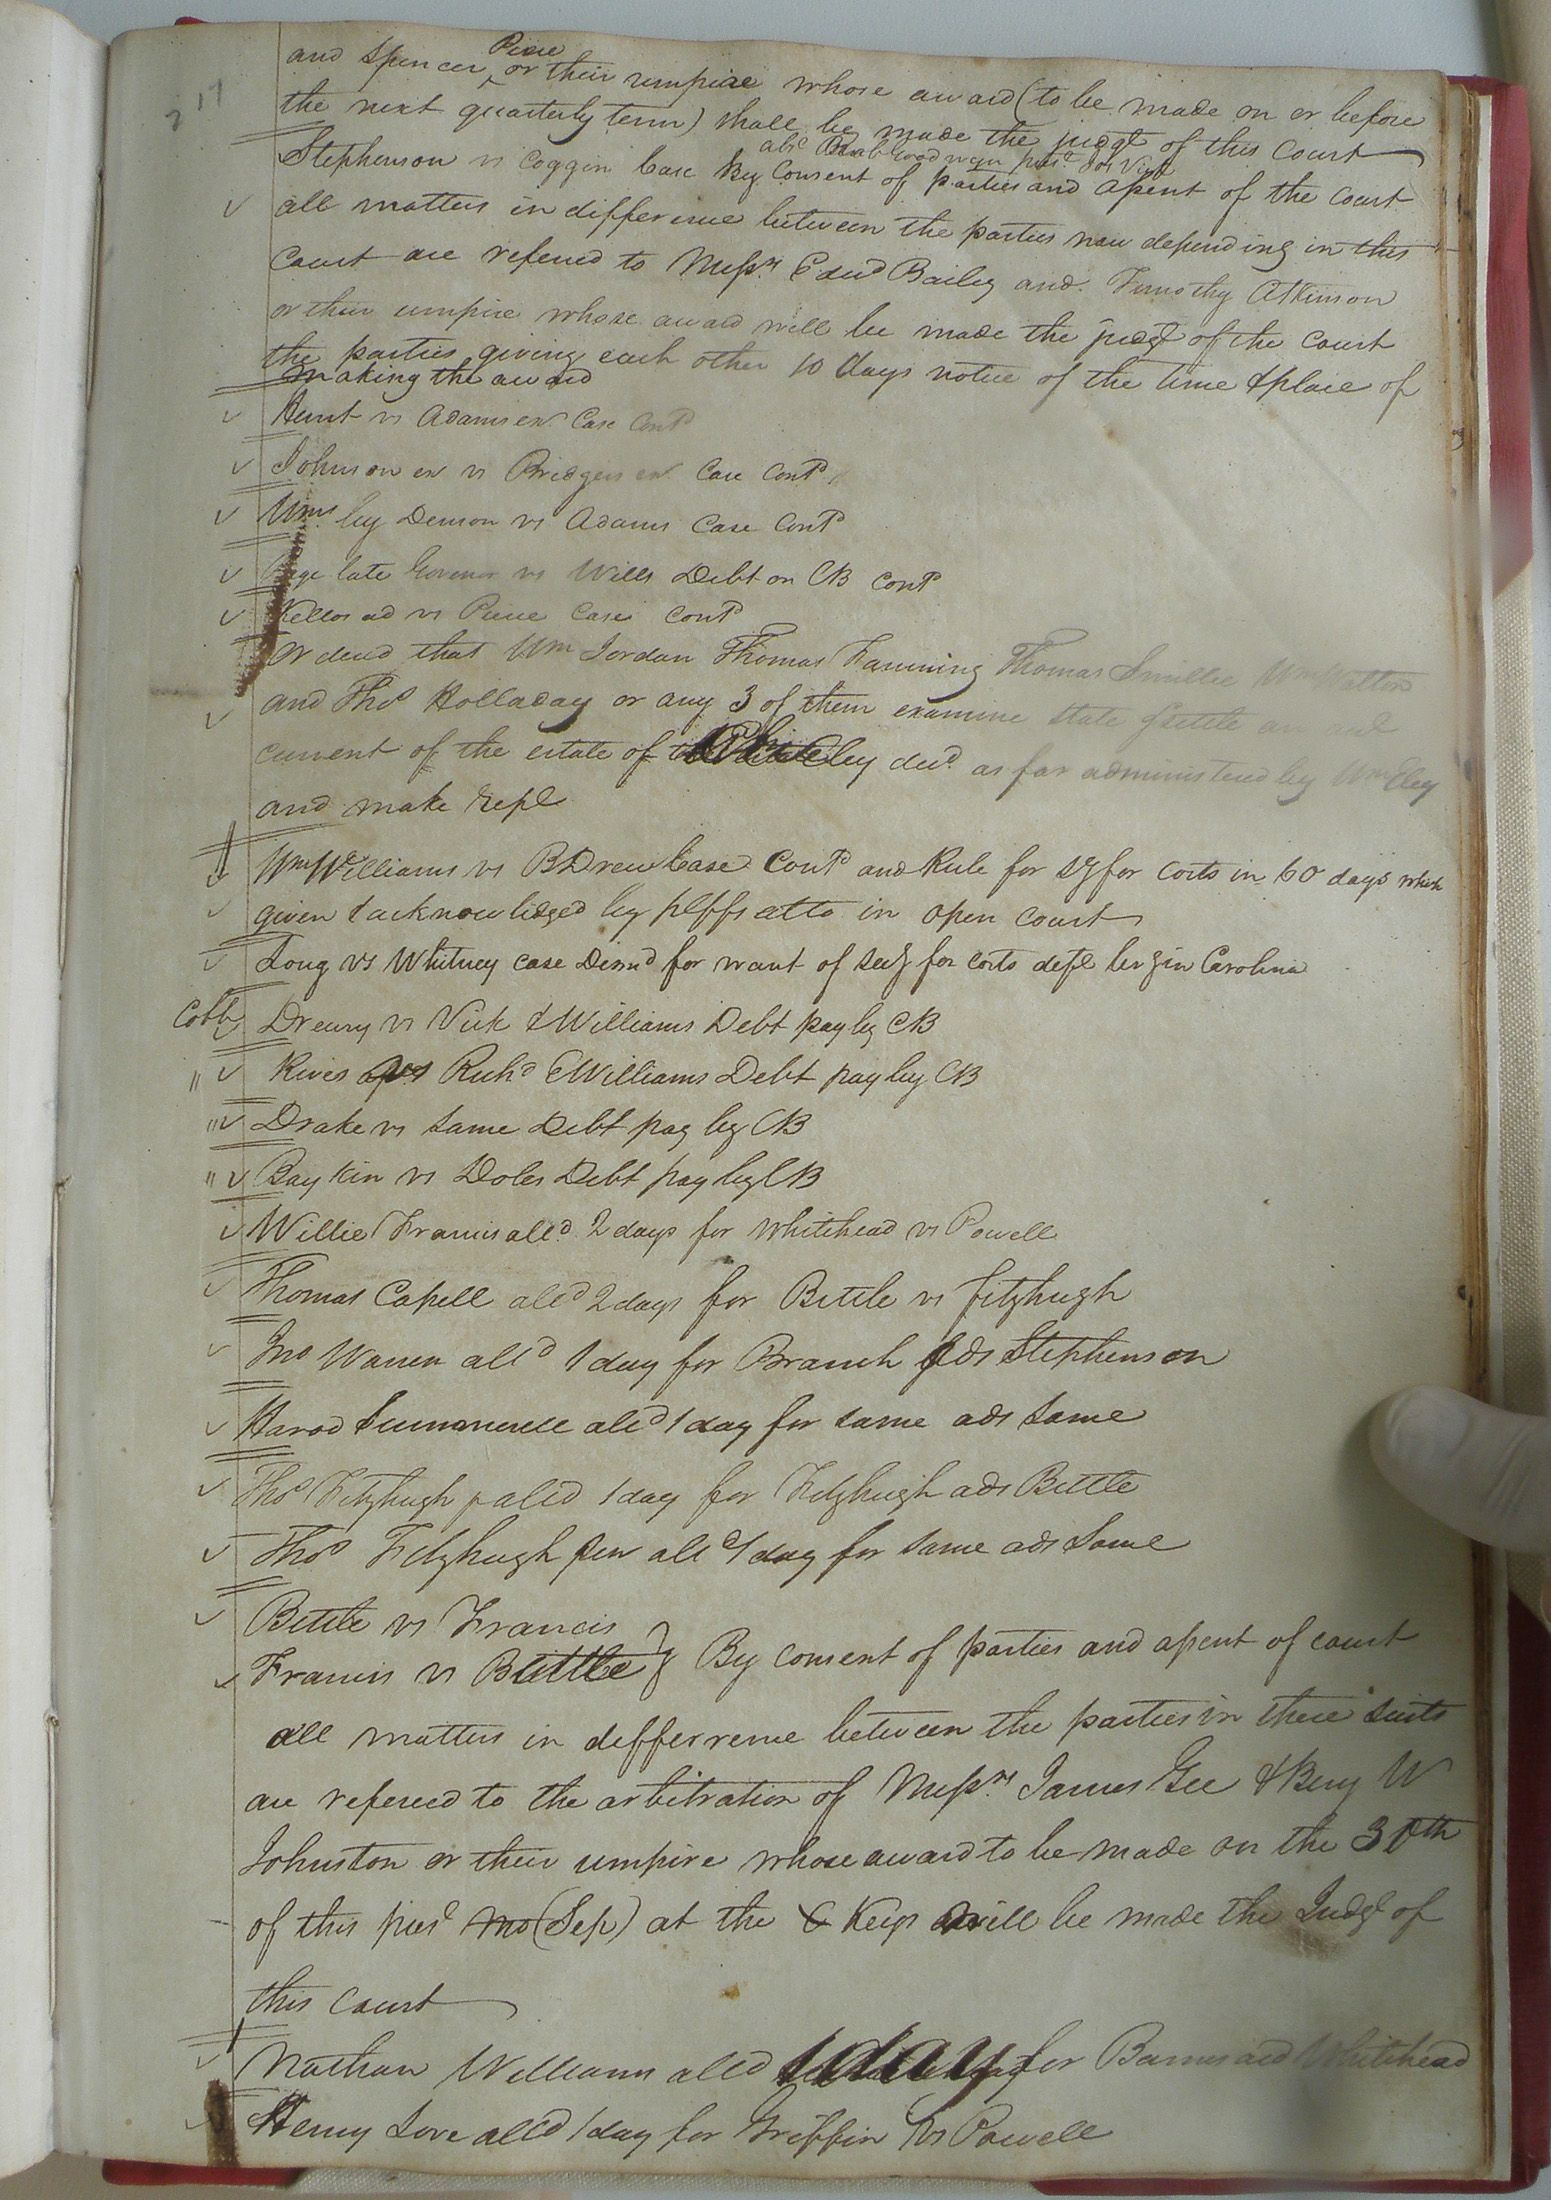 217
Pierce
and Spencer ^ or their umpire whose award (to be made on or before
the next quarterly term) shall be made the judgt of this court
abse Goodwyn prest for Vick
Stephenson vs Coggin Case By Consent of parties and assent of the court
all matters in difference between the parties now depending in this
Court are refered to Messrs Edwd Bailey and Timothy Atkinson
or their umpire whose award will be made the judgt of the court
the parties giving each other 10 days notice of the time & place of
making the award
Hunt vs Adams exr Case Contd
Johnson exr vs Bridgers exr Case Contd
Wms by Denson vs Adams Case Contd
Page late Govenor vs Wills Debt on CB Contd
Kello ad vs Pierce Case Contd
Ordered that Wm Jordan Thomas Fanning Thomas Smillee Wm Watton
and Thos Holladay or any 3 of them examine state & settle an act
current of the estate of Eley decd as far administered by Wm Eley
and make rept
Wm Williams vs B Drew Case Contd and Rule for sy for costs in 60 days which
given & acknowledged by plffs atto in open court
Long vs Whitney case Dismd for want of secy for costs deft livg in Carolina
Cobb Drewry vs Vick & Williams Debt pay by CB
" Rives vs Richd E Williams Debt pay by CB
" Drake vs same Debt pay by CB
" Baykin vs Doles Debt pay by CB
Willie Francis alld 2 days for Whitehead vs Powell
Thomas Capell alld 2 days for Bittle vs Fitzhugh
Jno Warren alld 1 day for Branch ads Stephenson
Harod Summerell alld 1 day for same ads same
Thos Fitzhugh alld 1 day for Fitzhugh ads Bittle
Thos Fitzhugh Jun alld 1 day for same ads same
Bittle vs Francis
Francis vs Bittle } By consent of parties and assent of court
all matters in differrence between the parties in these suits
are refered to the arbitration of Messrs James Gee & Benj W
Johnston or their umpire whose award to be made on the 30th
of this prest mo (Sep) at the X Keys will be made the Judgt of
this court
Nathan Williams alld 1 day for Barnes ad Whitehead
Henry Love alld 1 day for Griffin vs Powell